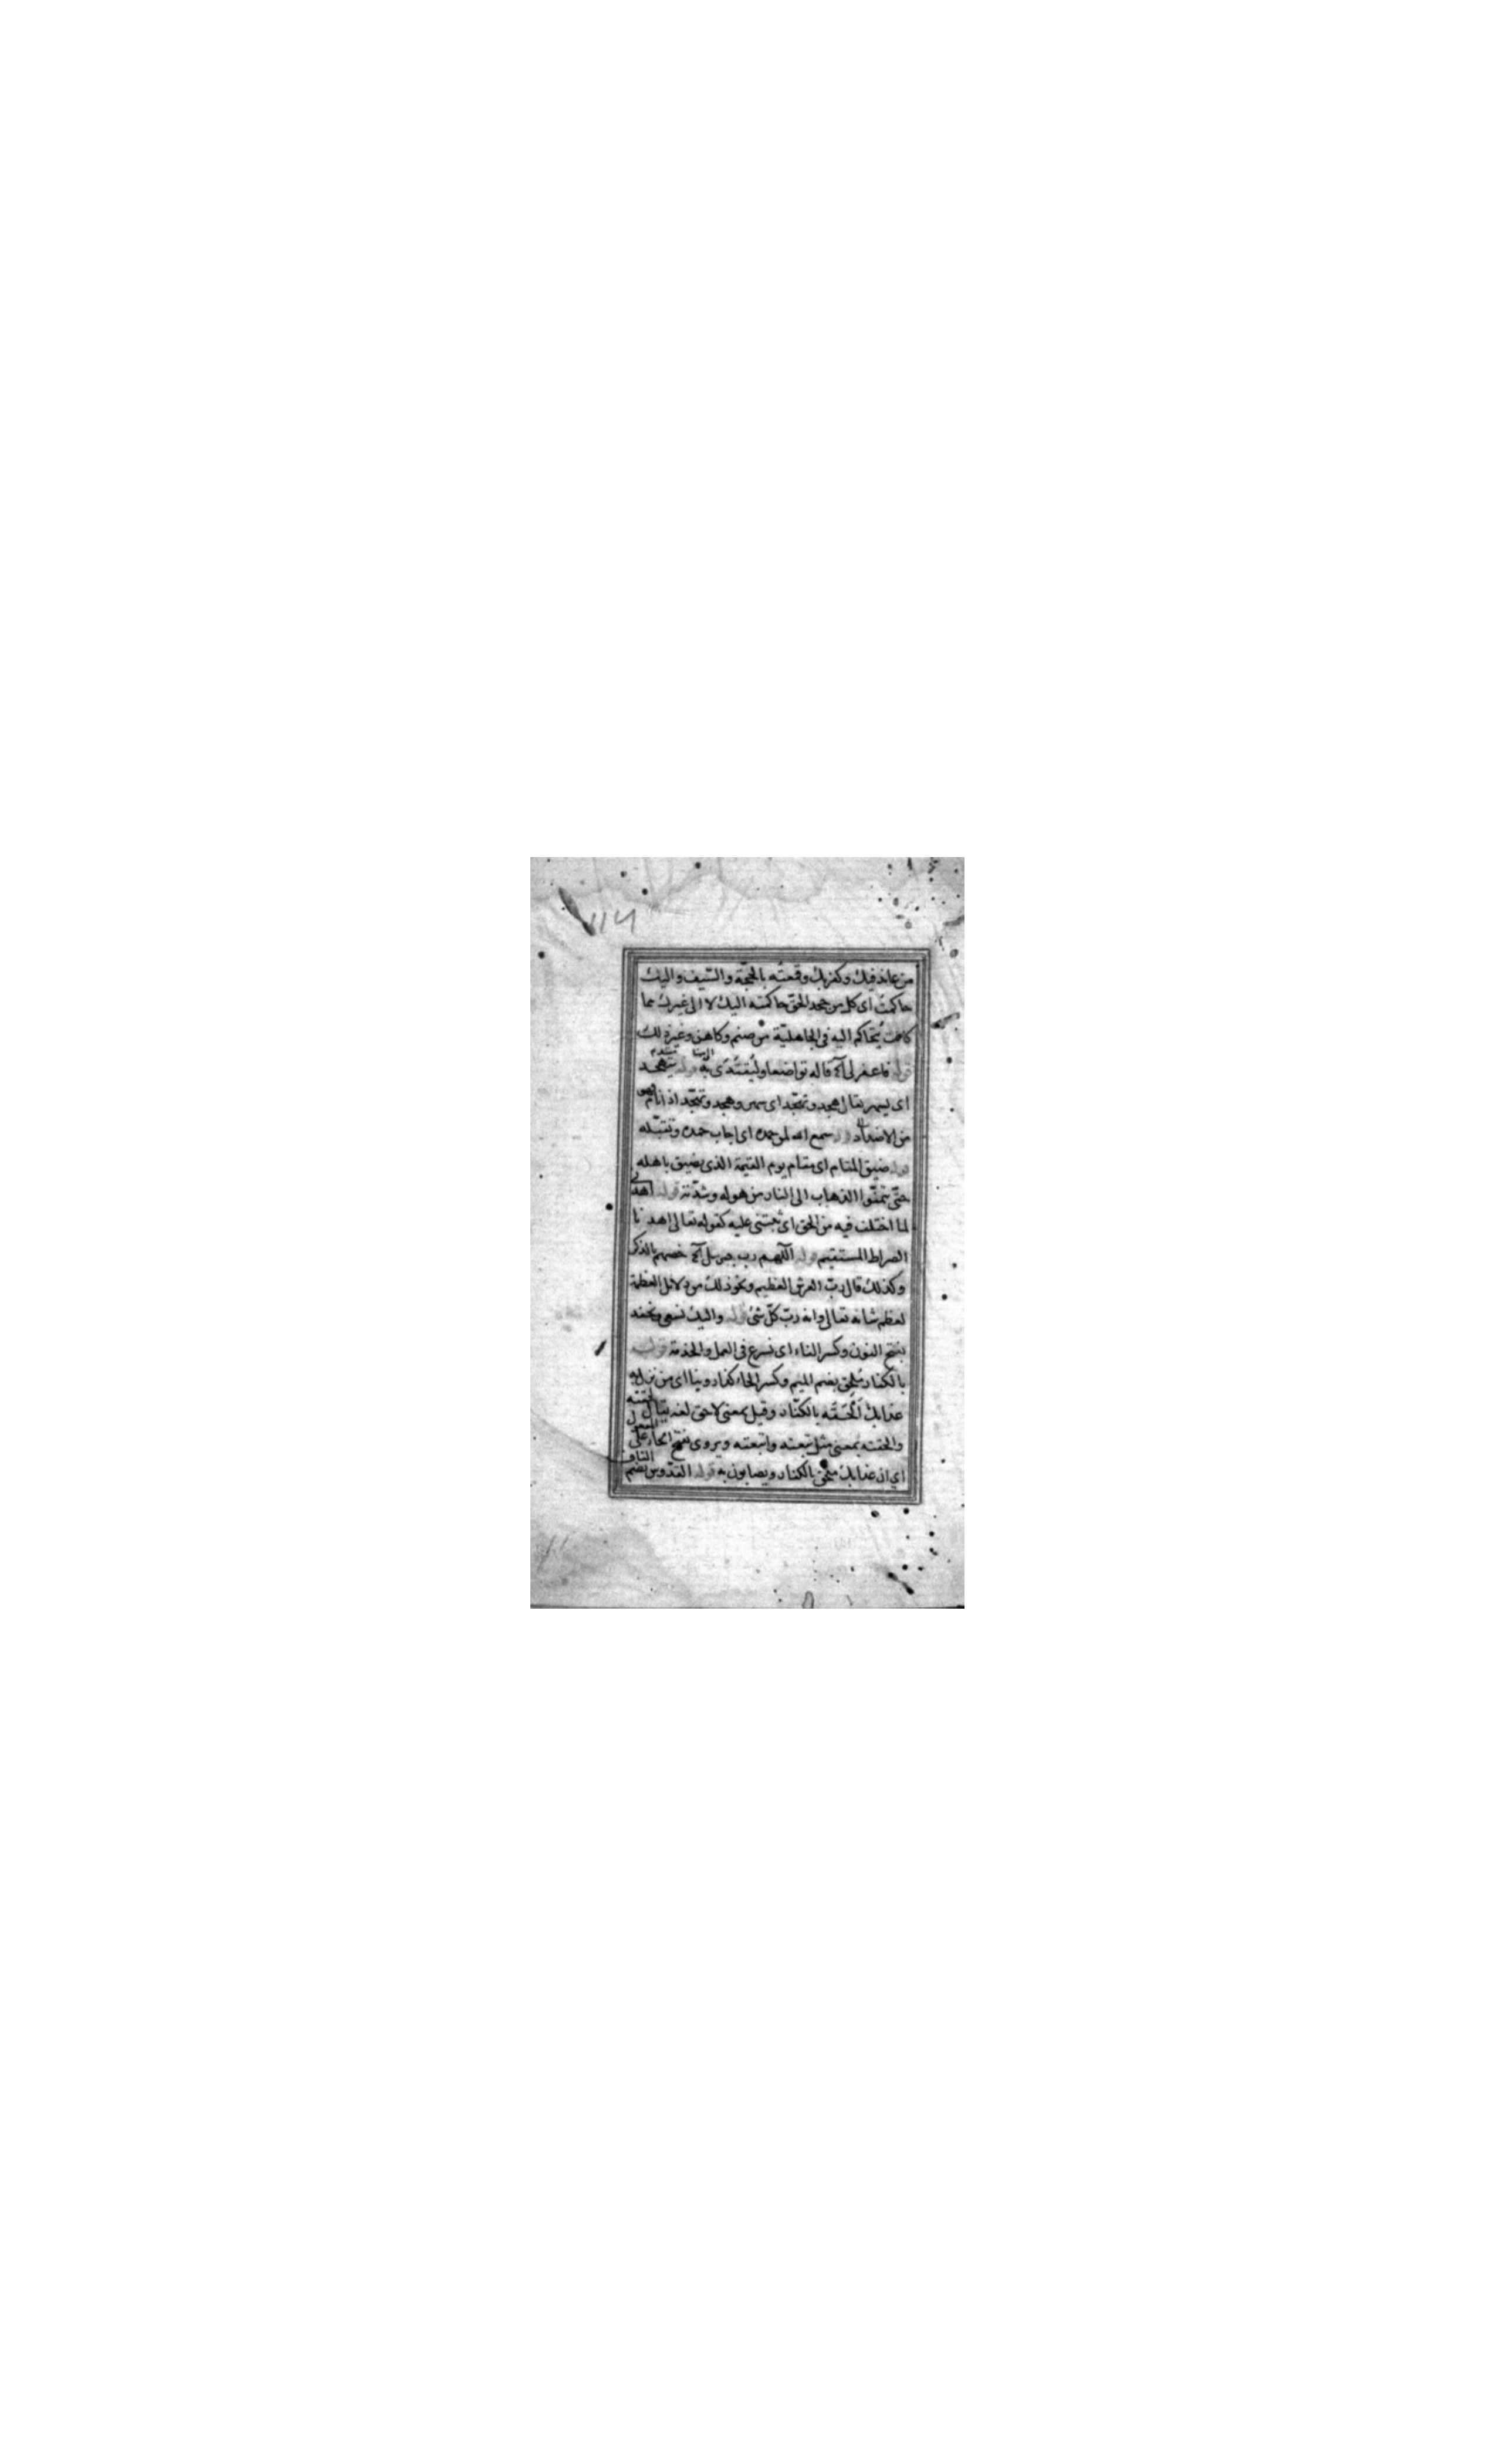 من عاند فيك وكفر بك وقمعته بالحجّة والسّيف واليك
حاكمت اى كل من جحد الحق حاكمته اليك لا الى غيرك مما
كانت يتحاكم اليه فى الجاهليّة من صنم وكاهن وغير ذلك
قوله فاغفر لى آه قاله تواضعا وليقتدى به قوله يتهجد
اى يسهر يقال هجد وتهجّد اى سهر وهجد وتهجّد اذا نام فهو
من الاضداد قوله سمع الله لمن حمده اى اجاب حمده وتقبّله
قوله ضيق المقام اى مقام يوم القيمة الذى يضيق باهله
حتّى يتمنّوا الذهاب الى النار من هوله وشدّته قوله اهدنى
لما اختلف فيه من الحق اى ثبتنى عليه كقوله تعالى اهدنا
الصراط المستقيم قوله اللّهم رب جبريل آه خصهم بالذكر
وكذلك قال ربّ العرش العظيم ونحو ذلك من دلائل العظمة
لعظم شانه تعالى وانه ربّ كلّ شئ قوله واليك نسعى ونحفد
بفتح النون وكسر الفاء اى نسرع فى العمل والخدمة قوله
بالكفار ملحق بضم الميم وكسر الحاء كذا روينا اى من نزل به
عذابك الحقته بالكفّار وقيل بمعنى لاحق لغة يقال لحقته
والحقته بمعنى مثل تبعته واتبعته ويروى بفتح الحاء على المفعول
اى ان عذابك ملحق بالكفار ويصابون به قوله القدّوس بضم القاف